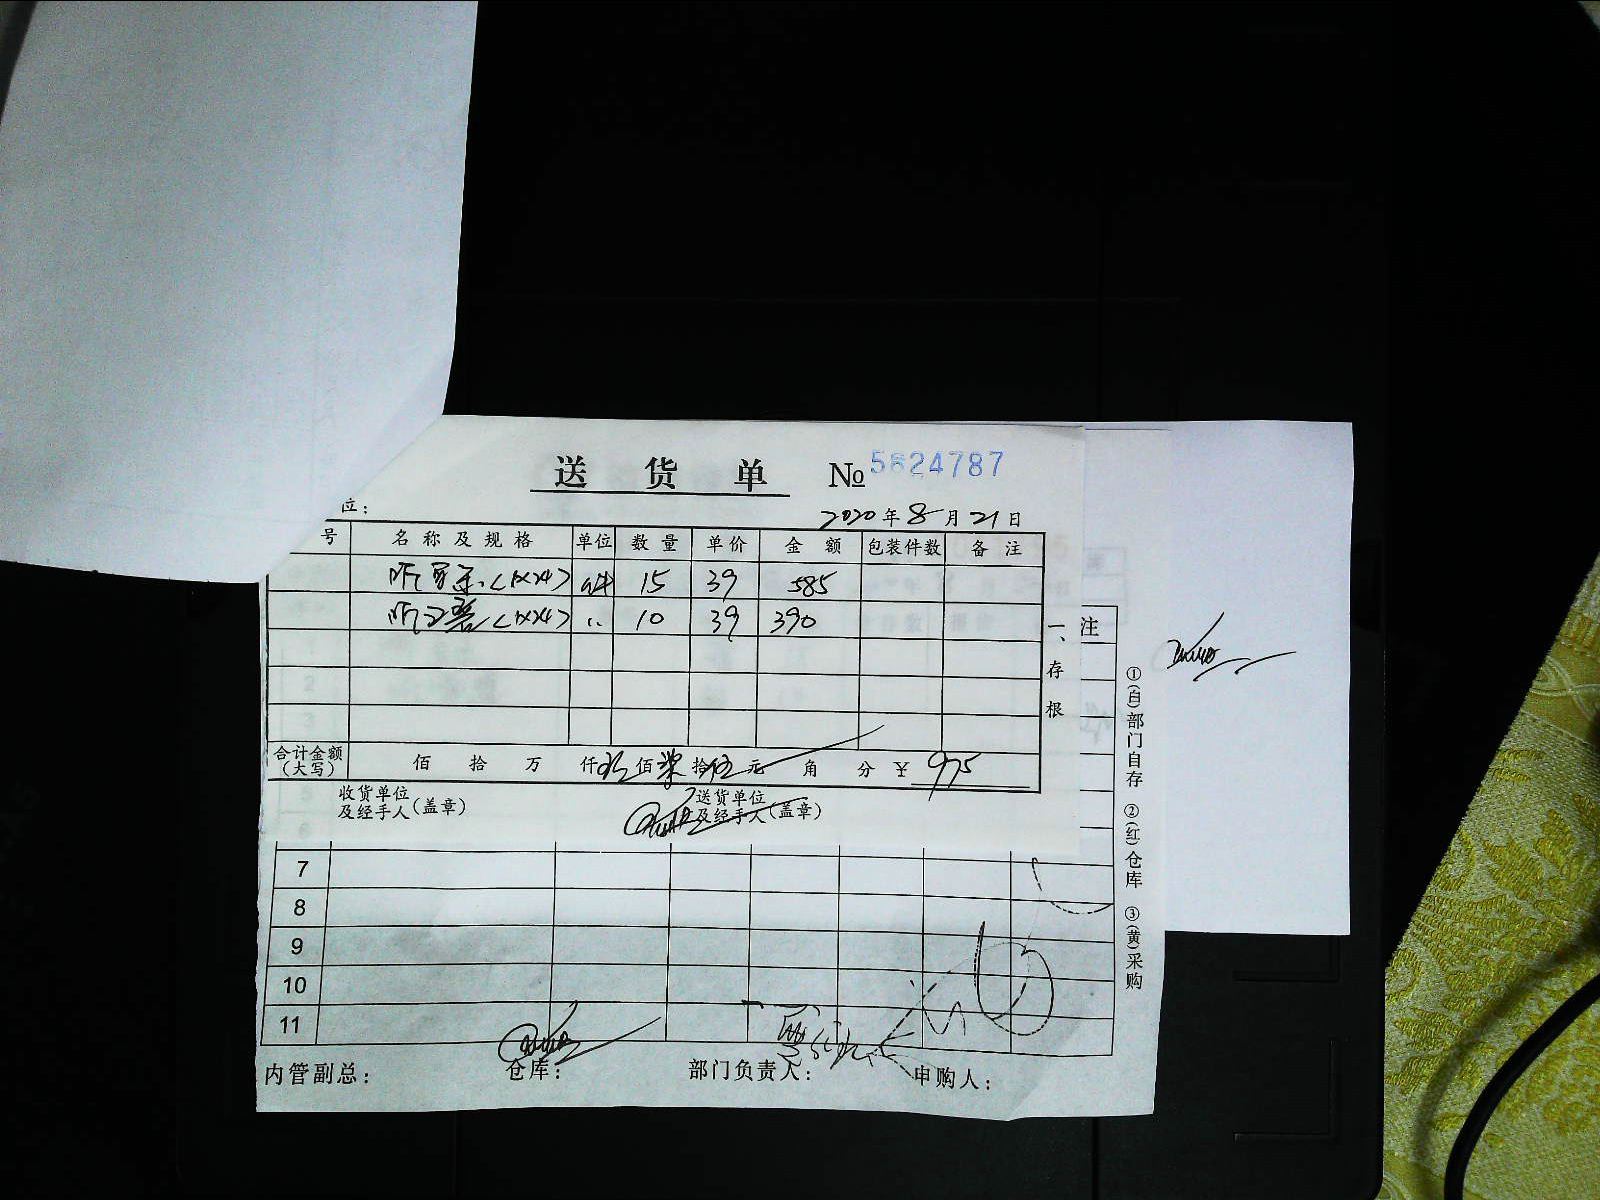 送货单 № 5624787
位：
2020年8月21日
号 名称及规格 单位 数量 单价 金额 包装件数 备注
<1x24> 件 15 39 585
<1x24> 〃 10 39 390
合计金额（大写） 佰 拾 万 仟 玖佰柒拾伍元 角 分 ￥ 975
收货单位及经手人（盖章）
送货单位及经手人（盖章）
一、存根
注
1
2
3
5
6
7
8
9
10
11
①(白)部门自存 ②(红)仓库 ③(黄)采购
内管副总： 仓库： 部门负责人： 申购人：